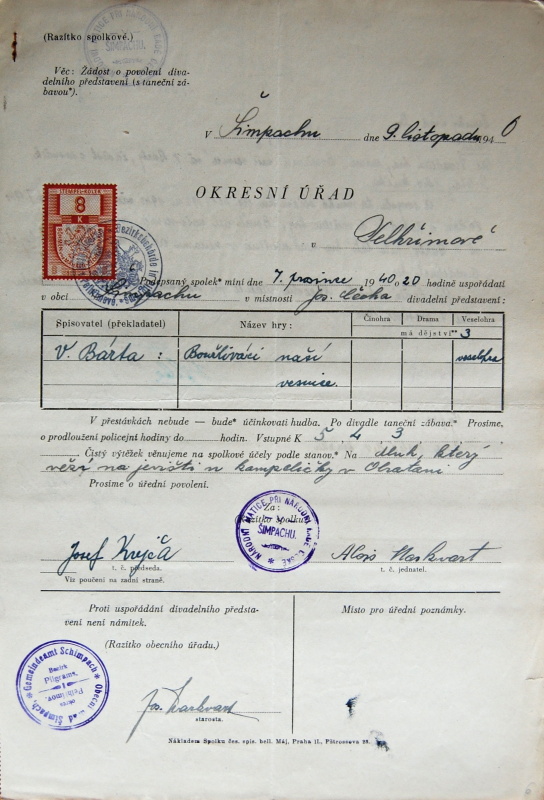 (Razítko spolkové.)
NÁRODNÍ MATICE PŘI NÁRODNÍ RADĚ ČESKÉ
ŠIMPACHU.
Věc: Žádost o povolení diva-
delního představení (s taneční zá-
bavou*).
V Šimpachu dne 9. listopadu 1940
OKRESNÍ ÚŘAD
v Pelhřimově
STEMPEL-KOLEK
8
K
Podepsaný spolek* míní dne 7. prosince 1940, 20 hodině uspořádati
v obci Šimpachu v místnosti Jos. divadelní představení:
Spisovatel (překladatel) Název hry: Činohra Drama Veselohra
má dějství** 3
V. Bárta: Bouřliváci naší veselohra
vesnice.
V přestávkách nebude — bude* účinkovati hudba. Po divadle taneční zábava.* Prosíme,
o prodloužení policejní hodiny do hodin. Vstupné K 5 4 3
Čistý výtěžek věnujeme na spolkové účely podle stanov.* Na dluh, který
vězí na jevišti u kampeličky v Obratani
Prosíme o úřední povolení.
Za:
Razítko spolku
NÁRODNÍ MATICE PŘI NÁRODNÍ RADĚ ČESKÉ
V
ŠIMPACHU.
Josef Krejčí Alois Markvart
t. č. předseda. t. č. jednatel.
Viz poučení na zadní straně.
Proti uspořádání divadelního představení není námitek.
Místo pro úřední poznámky.
(Razítko obecního úřadu.)
Gemeindeamt Schimpach
Bezirk
Pilgrams.
okres
Pelhřimov.
Obecní úřad Šimpach.
Jos. Markvart
starosta.
Nákladem Spolku čes. spis. bell. Máj, Praha II., Pštrossova 28